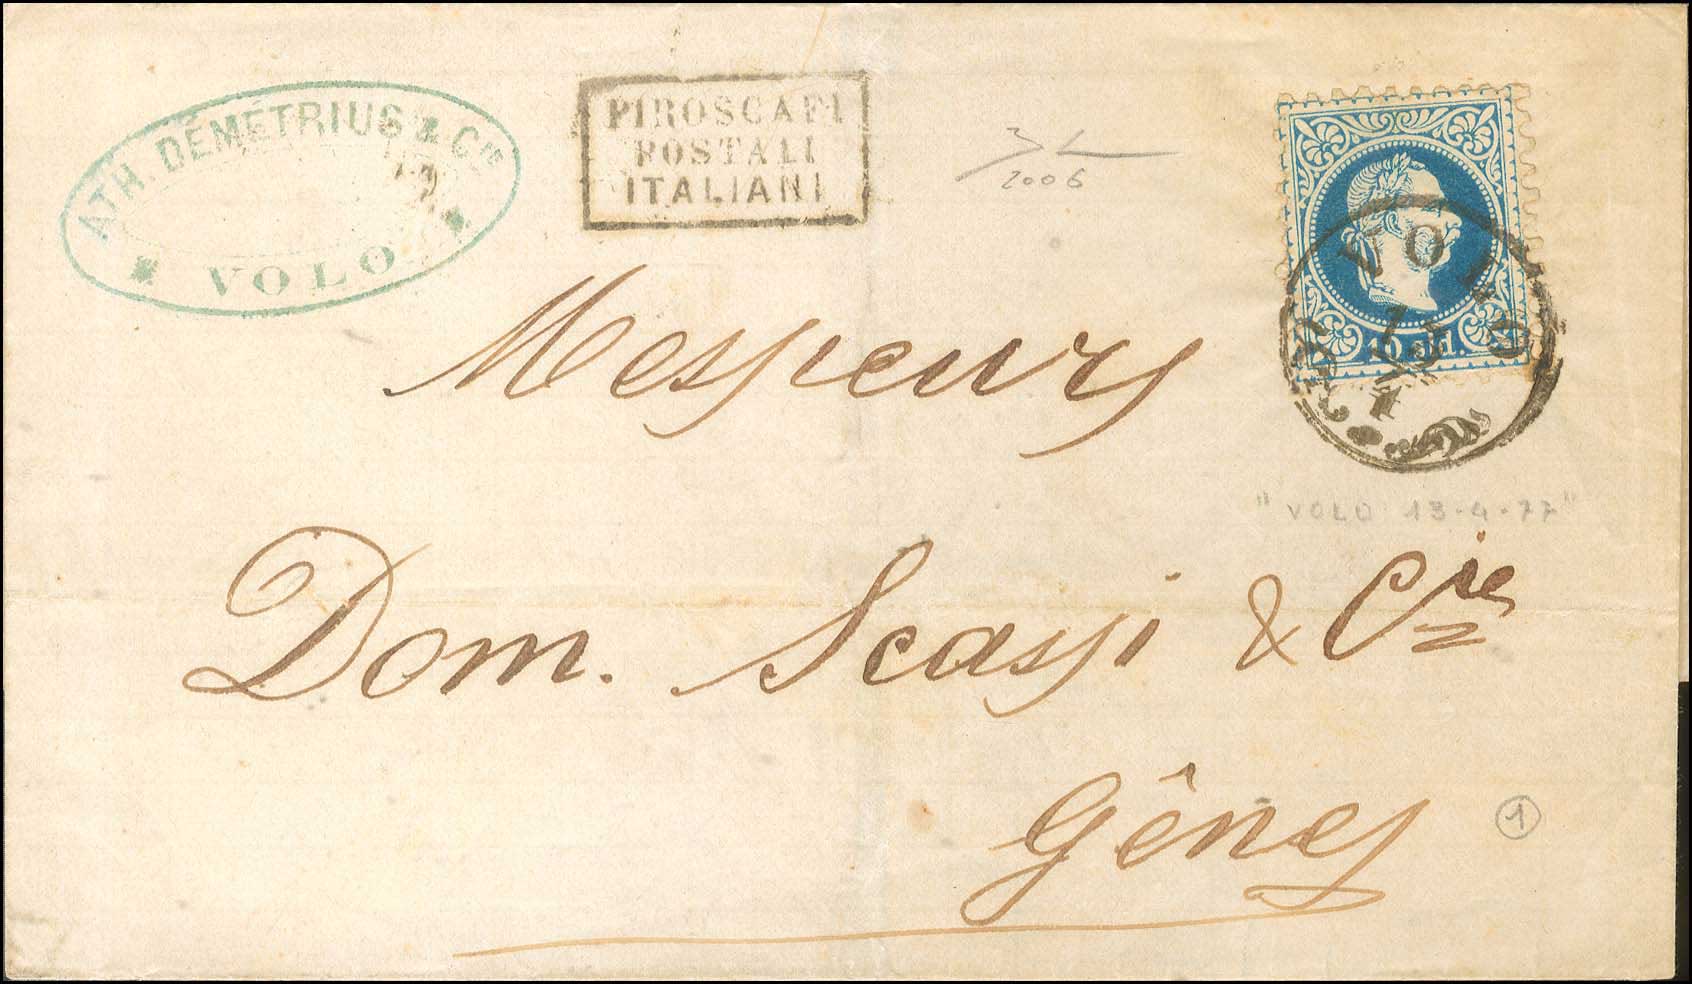 ATH. DÉMÉTRIUS & Cie
VOLO
PIROSCAFI
POSTALI
ITALIANI
2006
10 sld.
VOLO
13
"VOLO 13-4-77"
Messieurs
Dom. Scassi & Cie
Gênes
1